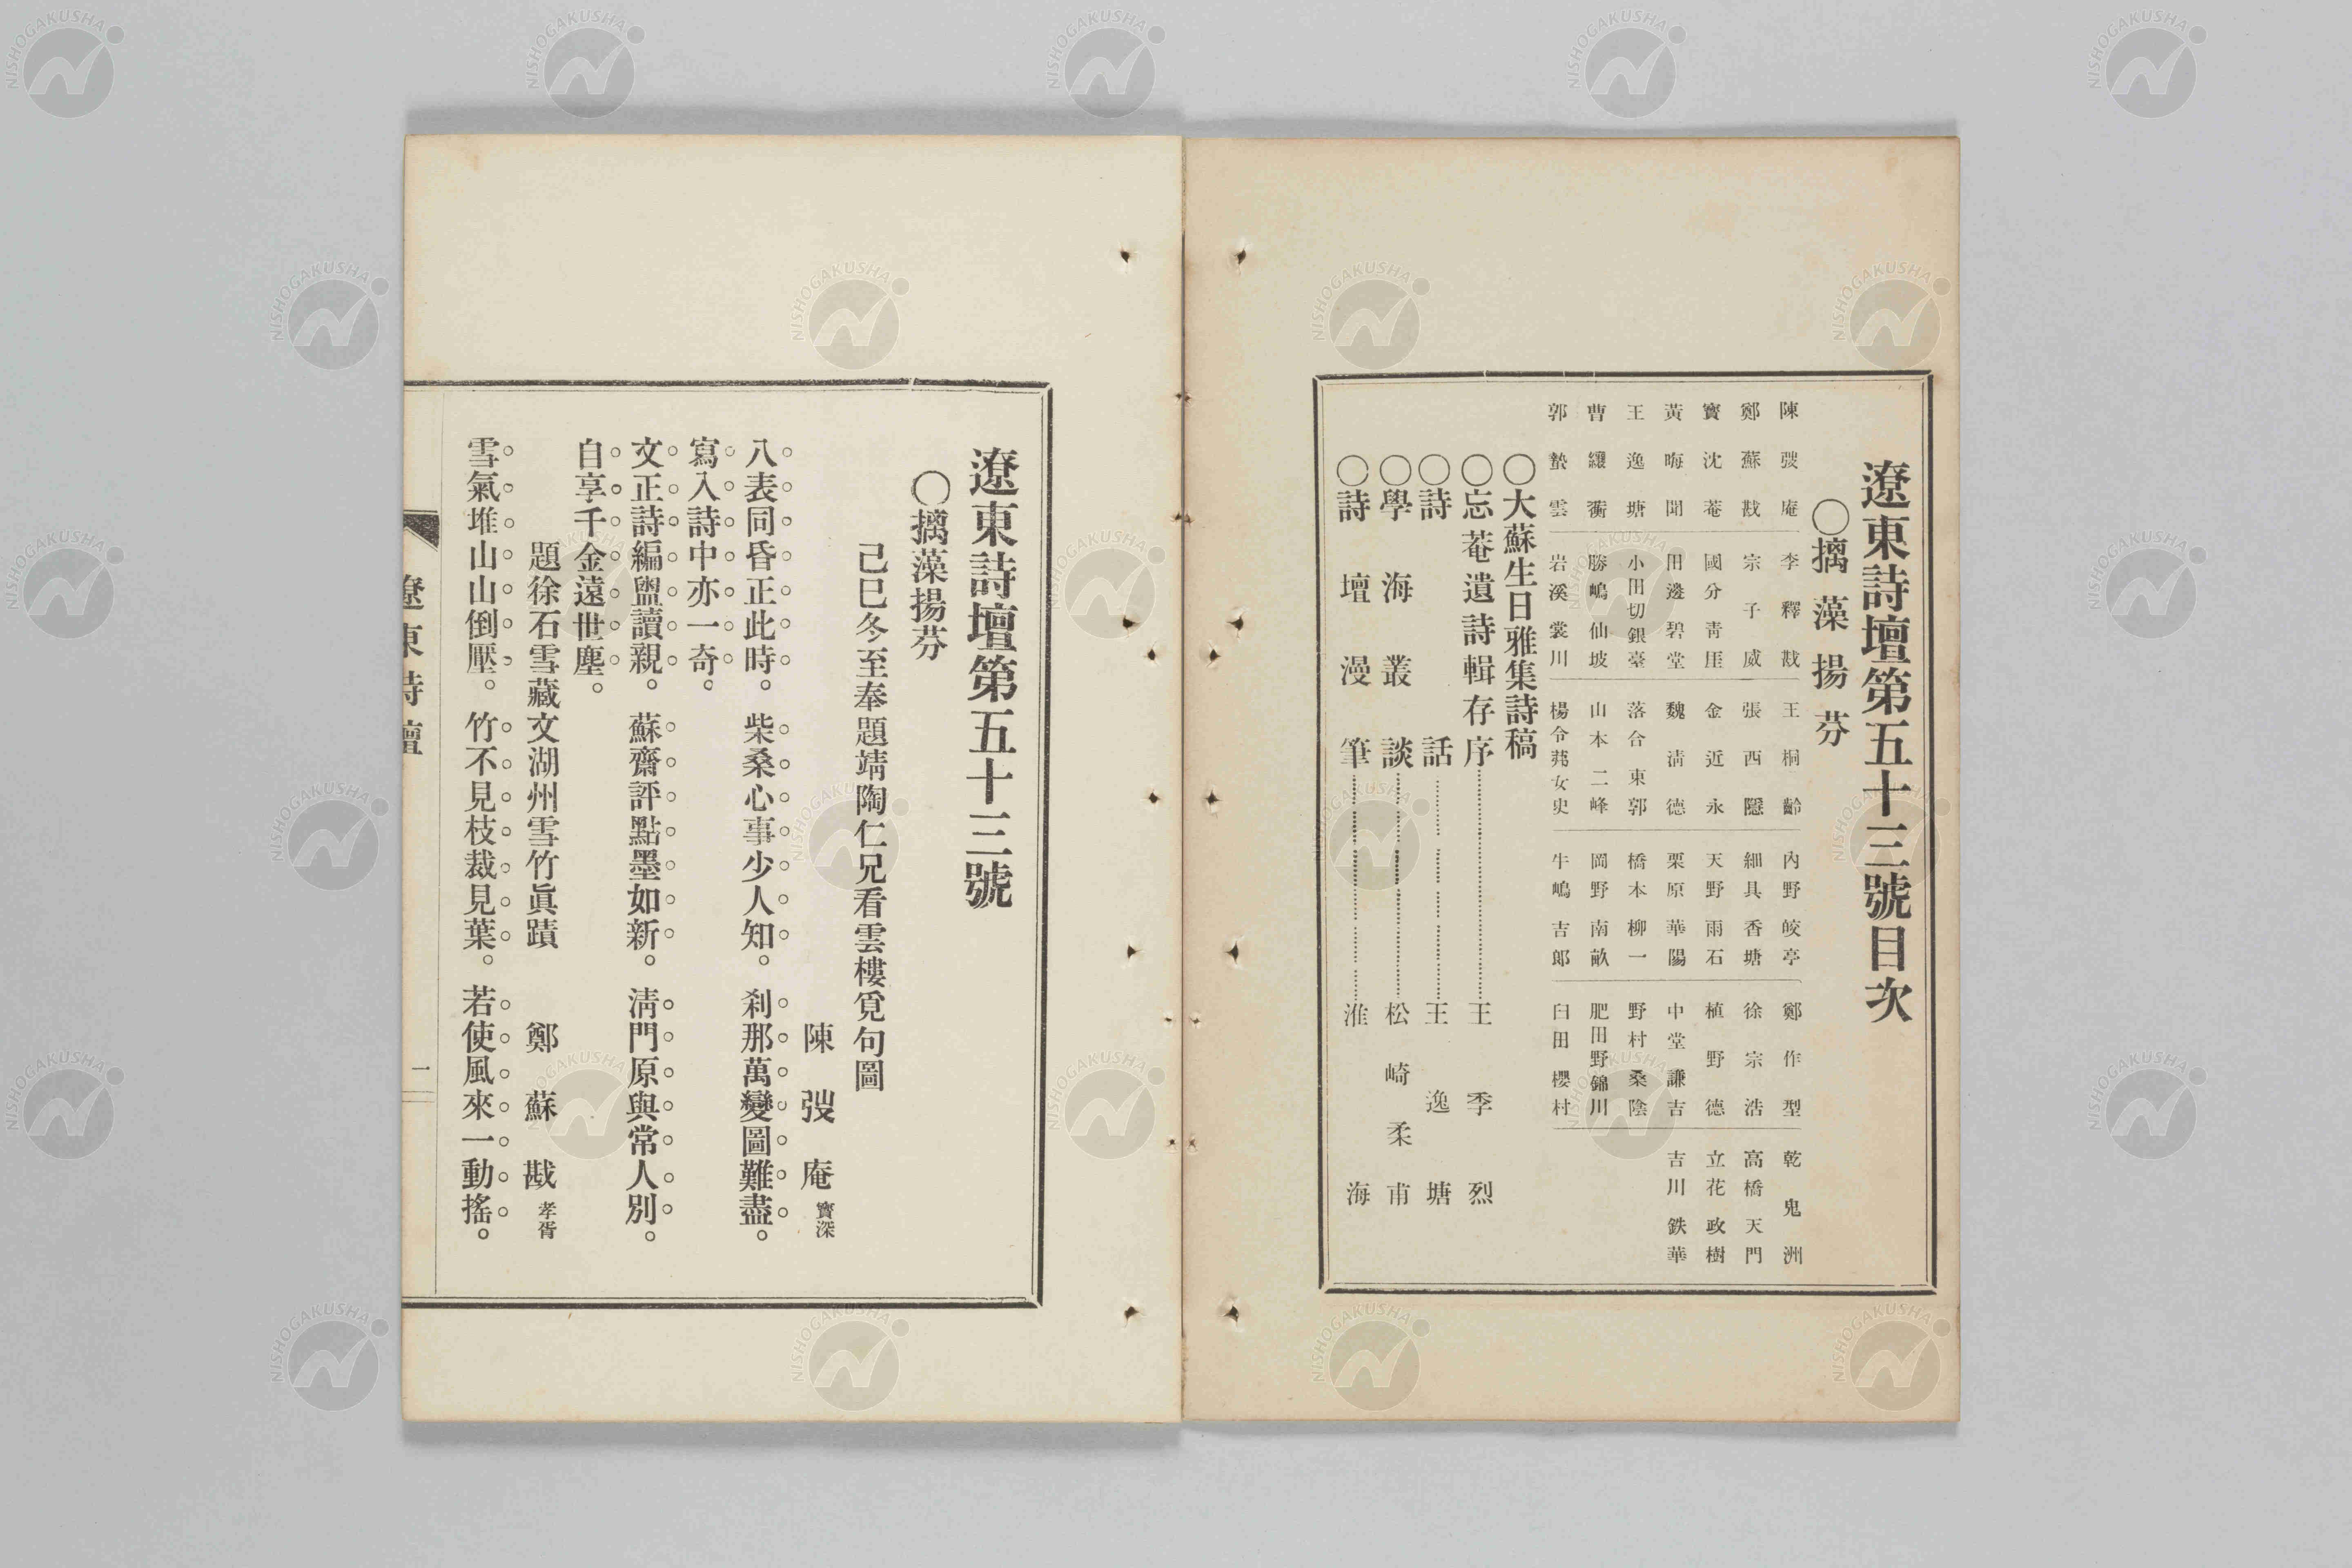 遼東詩壇第五十三號目次
〇摛藻揚芬
陳弢庵 李釋戡 王桐齡 內野皎亭 鄭作型 乾鬼洲
鄭蘇戡 宗子威 張西隱 細具香塘 徐宗浩 高橋天門
竇沈菴 國分靑厓 金近永 天野雨石 植野德 立花政樹
黃晦聞 田邊碧堂 魏淸德 栗原華陽 中堂謙吉 吉川鉄華
王逸塘 小田切銀臺 落合東郭 橋本柳一 野村桑陰
曹纕蘅 勝嶋仙坡 山本二峰 岡野南畝 肥田野錦川
郭蟄雲 岩溪裳川 楊令茀女史 牛嶋吉郎 臼田櫻村
〇大蘇生日雅集詩稿
〇忘菴遺詩輯存序………王季烈
〇詩話………王逸塘
〇學海叢談………松崎柔甫
〇詩壇漫筆………淮海
遼東詩壇第五十三號
〇摛藻揚芬
己巳冬至奉題靖陶仁兄看雲樓覓句圖
陳弢庵 寶深
八表同昏正此時。柴桑心事少人知。刹那萬變圖難盡。
寫入詩中亦一奇。
文正詩編盥讀親。蘇齋評點墨如新。淸門原與常人別。
自享千金遠世塵。
題徐石雪藏文湖州雪竹眞蹟 鄭蘇戡 孝胥
雪氣堆山山倒壓。竹不見枝裁見葉。若使風來一動搖。
遼東詩壇
一
NISHOGAKUSHA